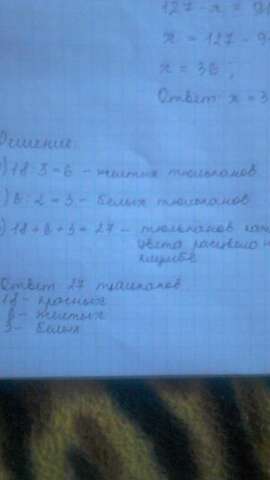 127 - x = 9
x = 127 - 9
x = 36 ;
Ответ: x = 3
Решение:
) 18:3=6 - жёлтых тюльпанов
) 6:2=3 - белых тюльпанов
) 18+6+3=27 - тюльпанов
цвета расцвело
клумбе
Ответ 27 тюльпанов
18 - красных
6 - жёлтых
3 - белых